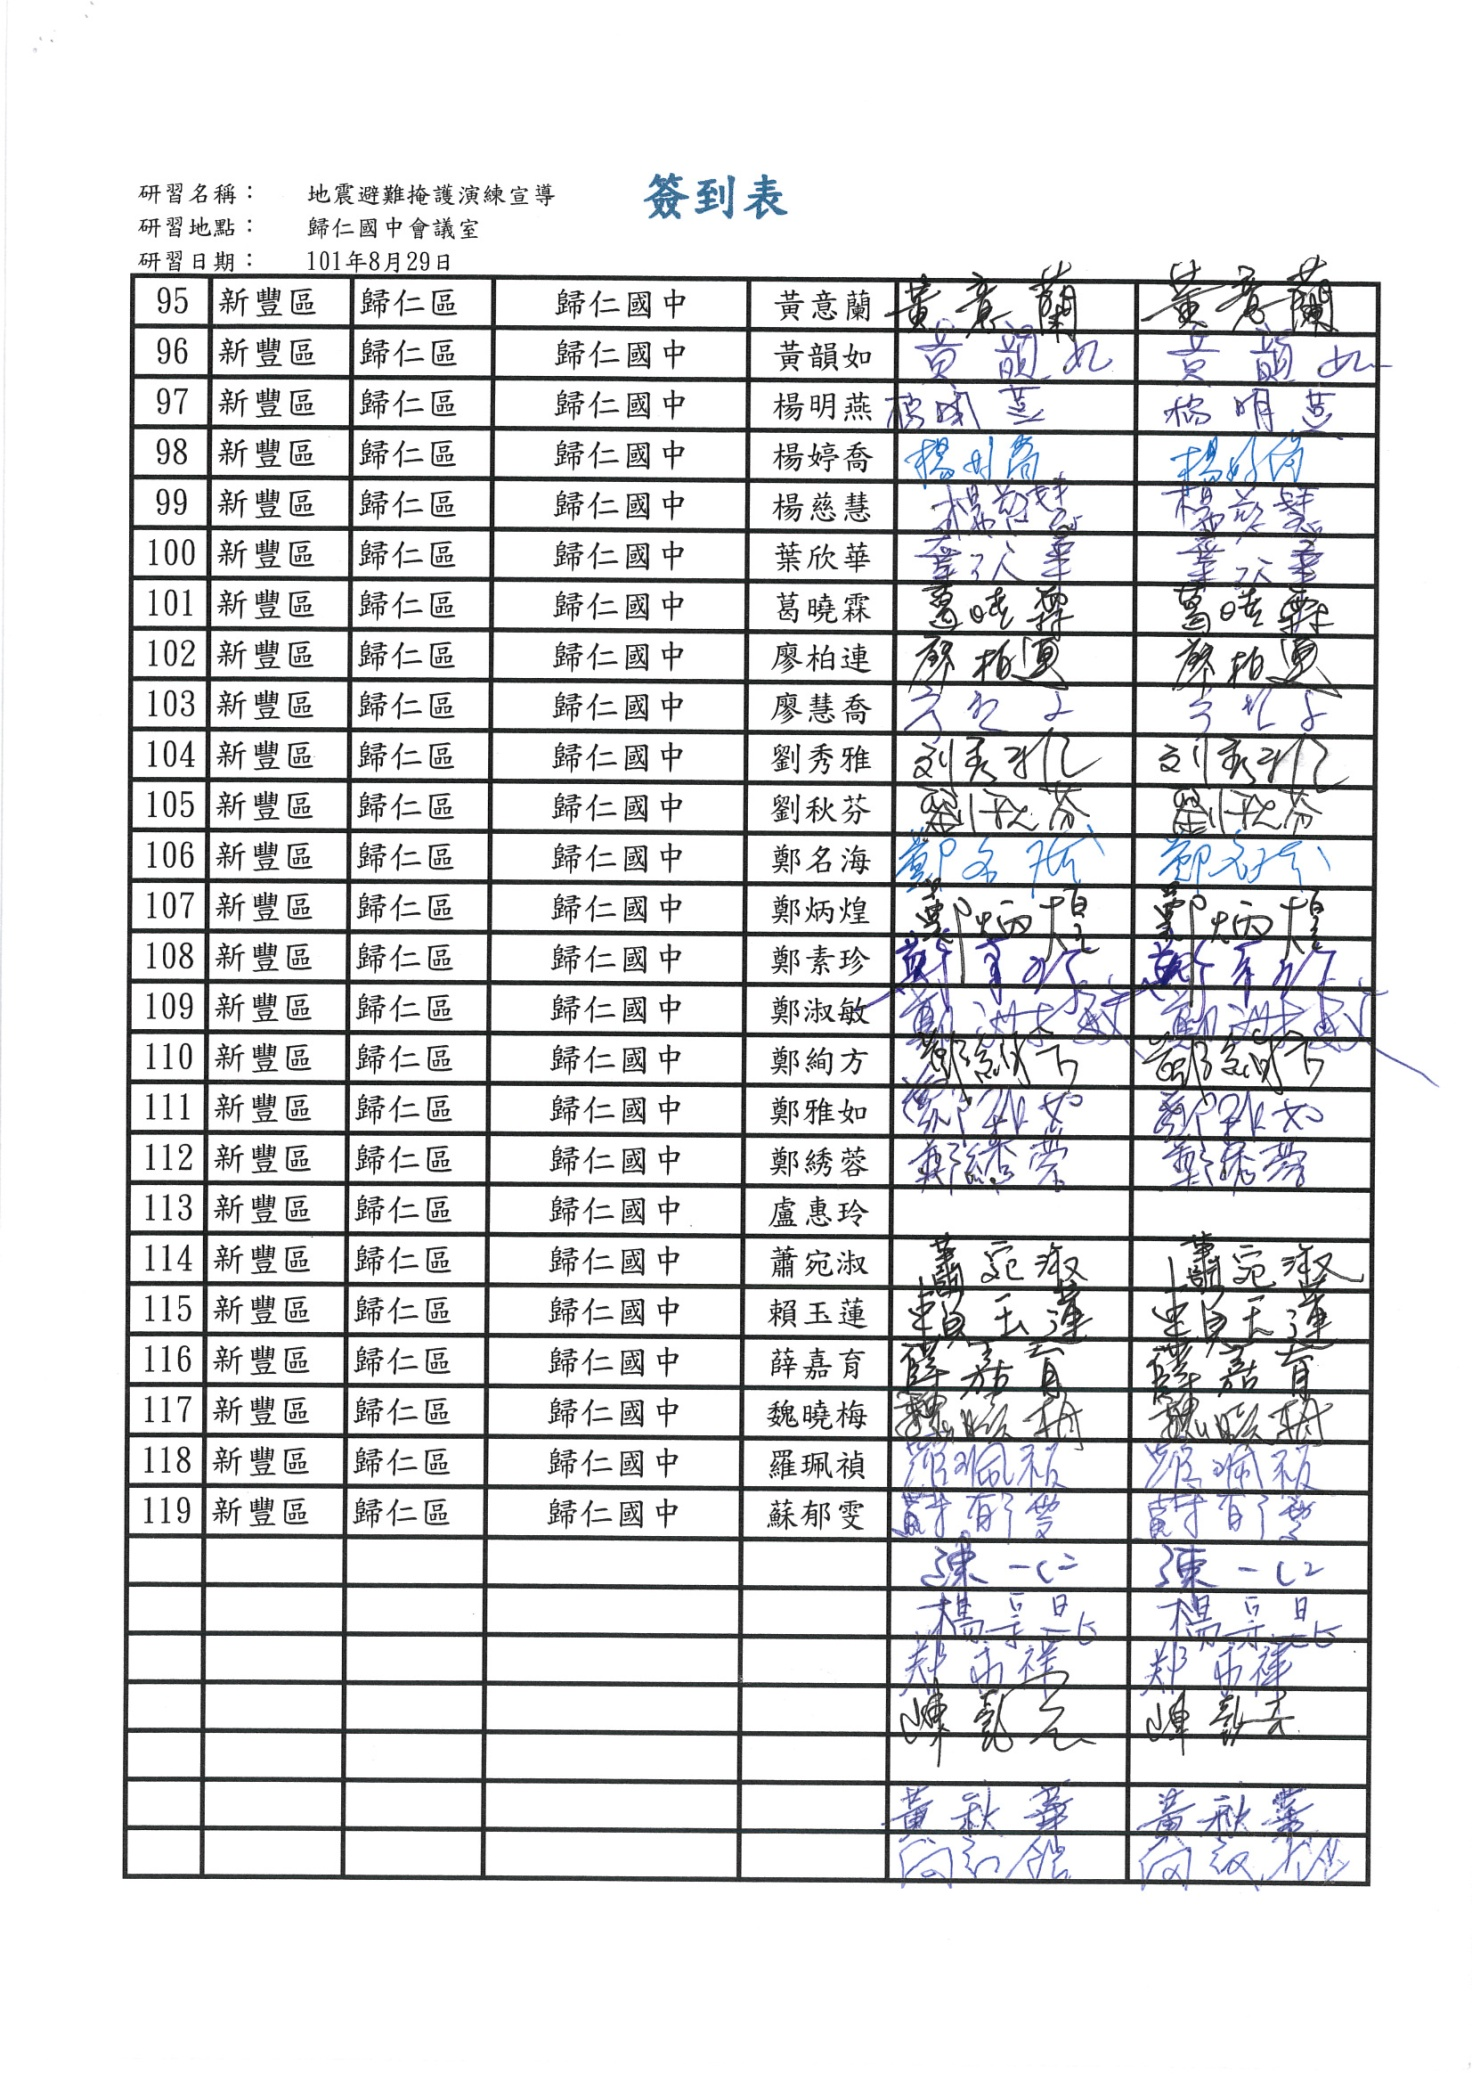 簽到表
研習名稱： 地震避難掩護演練宣導
研習地點： 歸仁國中會議室
研習日期： 101年8月29日
95 新豐區 歸仁區 歸仁國中 黃意蘭 黃意蘭 黃意蘭
96 新豐區 歸仁區 歸仁國中 黃韻如 黃韻如 黃韻如
97 新豐區 歸仁區 歸仁國中 楊明燕 楊明燕 楊明燕
98 新豐區 歸仁區 歸仁國中 楊婷喬 楊婷喬 楊婷喬
99 新豐區 歸仁區 歸仁國中 楊慈慧 楊慈慧 楊慈慧
100 新豐區 歸仁區 歸仁國中 葉欣華 葉欣華 葉欣華
101 新豐區 歸仁區 歸仁國中 葛曉霖 葛曉霖 葛曉霖
102 新豐區 歸仁區 歸仁國中 廖柏連 廖柏連 廖柏連
103 新豐區 歸仁區 歸仁國中 廖慧喬
104 新豐區 歸仁區 歸仁國中 劉秀雅 刘秀雅 刘秀雅
105 新豐區 歸仁區 歸仁國中 劉秋芬 劉秋芬 劉秋芬
106 新豐區 歸仁區 歸仁國中 鄭名海 鄭名海 鄭名海
107 新豐區 歸仁區 歸仁國中 鄭炳煌 鄭炳煌 鄭炳煌
108 新豐區 歸仁區 歸仁國中 鄭素珍 鄭素珍 鄭素珍
109 新豐區 歸仁區 歸仁國中 鄭淑敏 鄭淑敏 鄭淑敏
110 新豐區 歸仁區 歸仁國中 鄭絢方 鄭絢方 鄭絢方
111 新豐區 歸仁區 歸仁國中 鄭雅如 鄭雅如 鄭雅如
112 新豐區 歸仁區 歸仁國中 鄭綉蓉 鄭綉蓉 鄭綉蓉
113 新豐區 歸仁區 歸仁國中 盧惠玲
114 新豐區 歸仁區 歸仁國中 蕭宛淑 蕭宛淑 蕭宛淑
115 新豐區 歸仁區 歸仁國中 賴玉蓮 賴玉蓮 賴玉蓮
116 新豐區 歸仁區 歸仁國中 薛嘉育 薛嘉育 薛嘉育
117 新豐區 歸仁區 歸仁國中 魏曉梅 魏曉梅 魏曉梅
118 新豐區 歸仁區 歸仁國中 羅珮禎 羅珮禎 羅珮禎
119 新豐區 歸仁區 歸仁國中 蘇郁雯 蘇郁雯 蘇郁雯
陳一仁 陳一仁
楊宗昆 楊宗昆
黃秋華 黃秋華